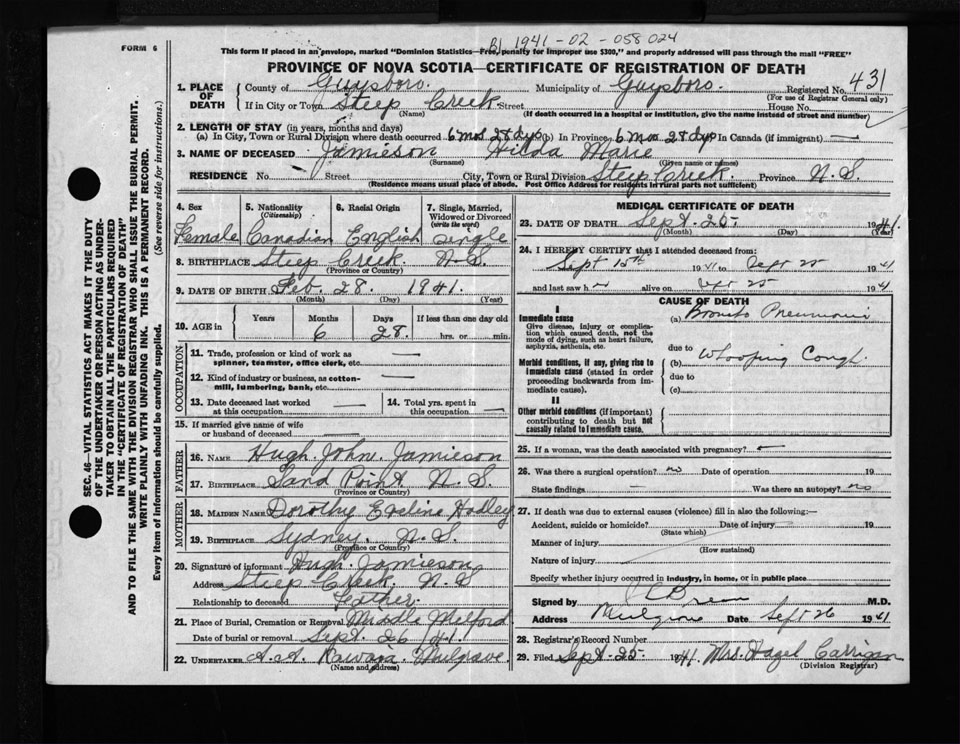 FORM 6
BJ 1941-02-058024
This form if placed in an envelope, marked "Dominion Statistics—Free, penalty for improper use $300," and properly addressed will pass through the mail "FREE"
PROVINCE OF NOVA SCOTIA—CERTIFICATE OF REGISTRATION OF DEATH
1. PLACE OF DEATH County of Guysboro. Municipality of Guysboro. Registered No. 431
(For use of Registrar General only)
If in City or Town Steep Creek Street House No.
(Name) (If death occurred in a hospital or institution, give the name instead of street and number)
2. LENGTH OF STAY (in years, months and days)
(a) In City, Town or Rural Division where death occurred 6 mos 28 dys (b) In Province 6 mos 28 dys In Canada (if immigrant) —
3. NAME OF DECEASED Jamieson Hilda Marie
(Surname) (Given name or names)
RESIDENCE No. Street City, Town or Rural Division Steep Creek. Province N.S.
(Residence means usual place of abode. Post Office Address for residents in rural parts not sufficient)
4. Sex 5. Nationality (Citizenship) 6. Racial Origin 7. Single, Married, Widowed or Divorced (write the word)
Female Canadian English single
8. BIRTHPLACE Steep Creek. N.S.
(Province or Country)
9. DATE OF BIRTH Feb. 28. 1941.
(Month) (Day) (Year)
10. AGE in Years Months Days If less than one day old
6 28 hrs. or min.
OCCUPATION
11. Trade, profession or kind of work as spinner, teamster, office clerk, etc. —
12. Kind of industry or business, as cotton-mill, lumbering, bank, etc. —
13. Date deceased last worked at this occupation — 14. Total yrs. spent in this occupation —
15. If married give name of wife or husband of deceased —
FATHER
16. NAME Hugh John Jamieson
17. BIRTHPLACE Sand Point N.S.
(Province or Country)
MOTHER
18. MAIDEN NAME Dorothy Eveline Hadley
19. BIRTHPLACE Sydney. N.S.
(Province or Country)
20. Signature of informant Hugh Jamieson
Address Steep Creek. N.S
Relationship to deceased Father.
21. Place of Burial, Cremation or Removal Middle Melford
Date of burial or removal Sept. 26 /41.
22. UNDERTAKER A.A. Kawaja. Mulgrave
(Name and address)
MEDICAL CERTIFICATE OF DEATH
23. DATE OF DEATH Sept. 25. 1941.
(Month) (Day) (Year)
24. I HEREBY CERTIFY that I attended deceased from:
Sept 15th 1941 to Sept 25 1941
and last saw h alive on Sept 25 1941
CAUSE OF DEATH
I
Immediate cause (a) Broncho Pneumonia
Give disease, injury or complication which caused death, not the mode of dying, such as heart failure, asphyxia, asthenia, etc.
due to
Morbid conditions, if any, giving rise to immediate cause (stated in order proceeding backwards from immediate cause). (b) Whooping Cough.
due to
(c)
II
Other morbid conditions (if important) contributing to death but not causally related to immediate cause.
25. If a woman, was the death associated with pregnancy?
26. Was there a surgical operation? no Date of operation 19
State findings — Was there an autopsy? no
27. If death was due to external causes (violence) fill in also the following:—
Accident, suicide or homicide? Date of injury 19
(State which)
Manner of injury
(How sustained)
Nature of injury
Specify whether injury occurred in industry, in home, or in public place
Signed by M.D.
Address Mulgrave Date Sept 26 1941
28. Registrar's Record Number
29. Filed Sept. 25 1941. Mrs. Hazel Carrigan
(Division Registrar)
SEC. 46—VITAL STATISTICS ACT MAKES IT THE DUTY
OF THE UNDERTAKER OR PERSON ACTING AS UNDER-
TAKER TO OBTAIN ALL THE PARTICULARS REQUIRED
IN THE "CERTIFICATE OF REGISTRATION OF DEATH"
AND TO FILE THE SAME WITH THE DIVISION REGISTRAR WHO SHALL ISSUE THE BURIAL PERMIT.
WRITE PLAINLY WITH UNFADING INK. THIS IS A PERMANENT RECORD.
Every item of information should be carefully supplied. (See reverse side for instructions.)